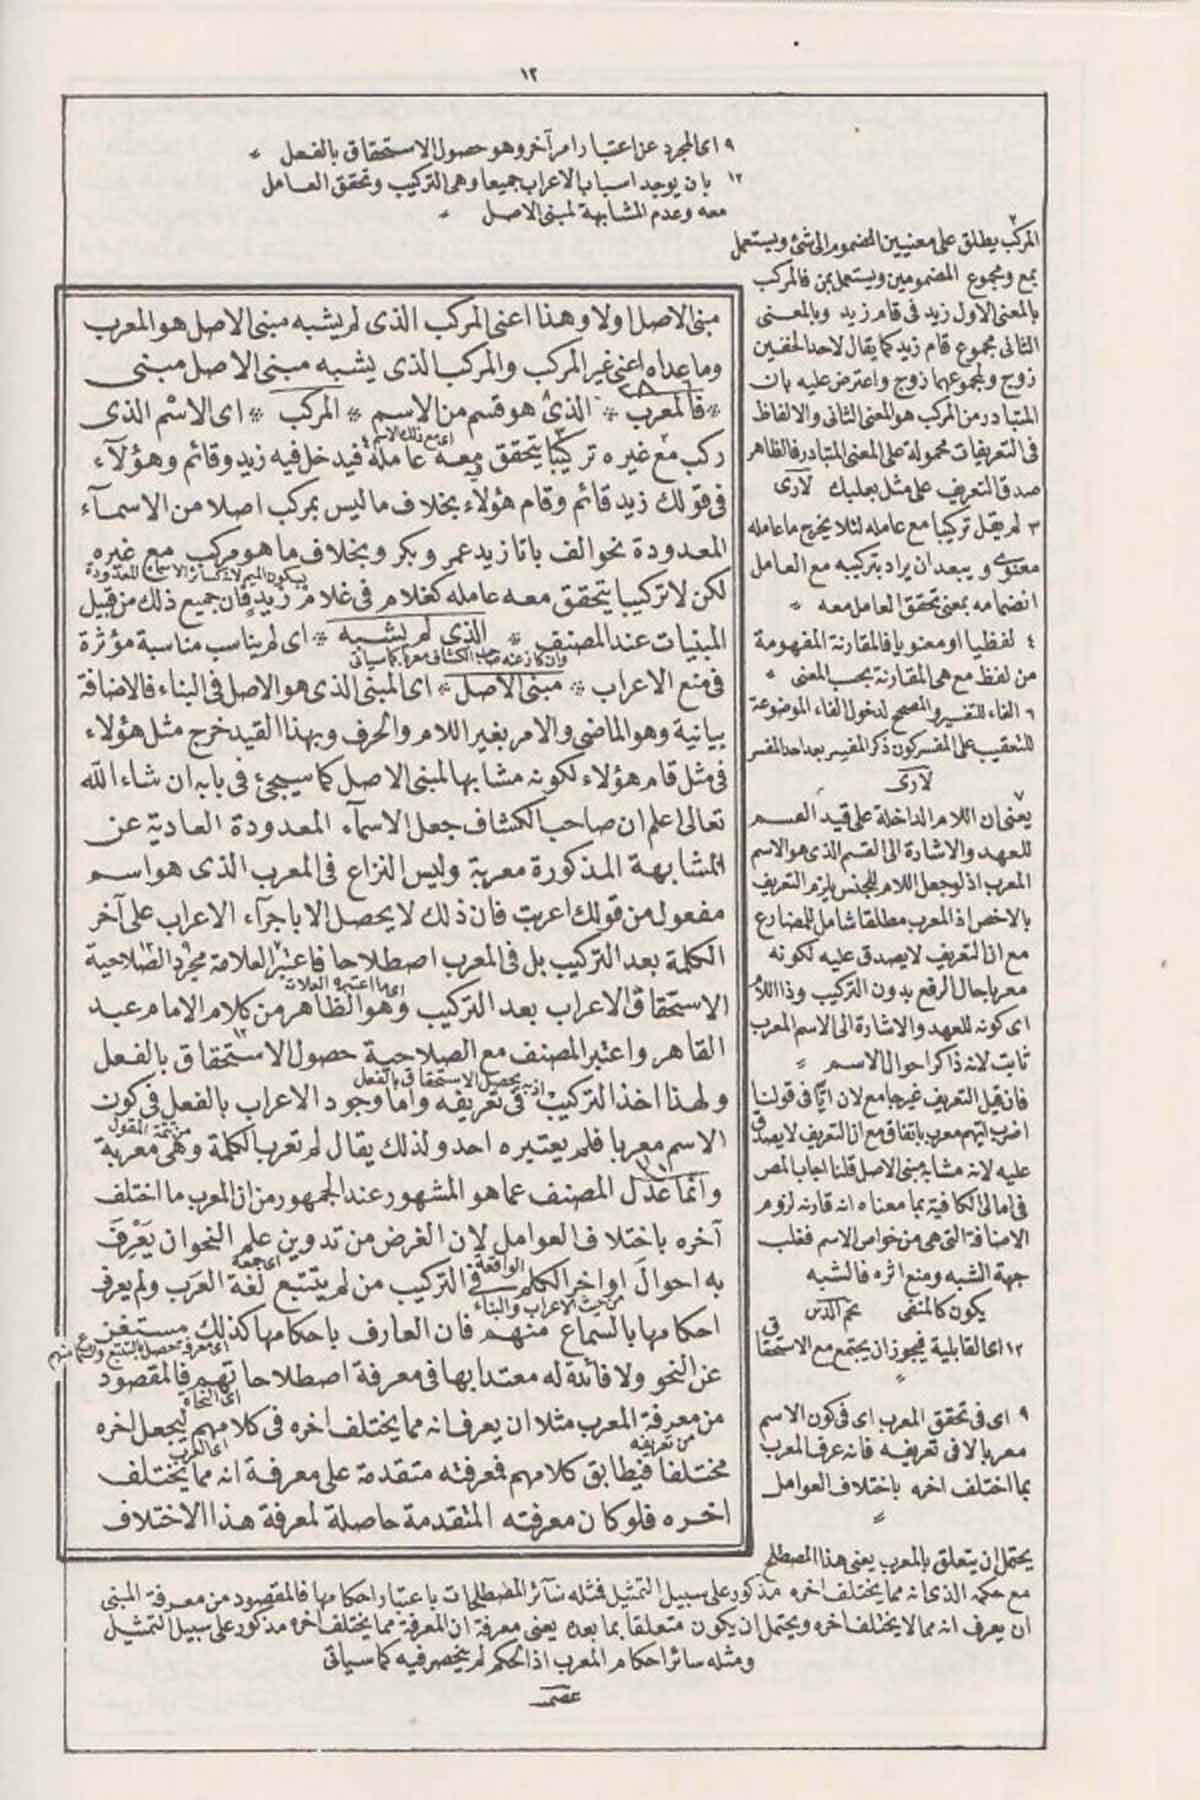 ١٢
٩ اى المجرد عن اعتبار امر آخر وهو حصول الاستحقاق بالفعل
١٢ بان يوجد اسباب الاعراب جميعا وهى التركيب وتحقق العامل
معه وعدم المشابهة لمبنى الاصل
مبنى الاصل اولا وهذا اعنى المركب الذى لم يشبه مبنى الاصل هو المعرب
وما عداه اعنى غير المركب والمركب الذى يشبه مبنى الاصل مبنى
* فالمعرب * الذى هو قسم من الاسم * المركب * اى الاسم الذى
ركب مع غيره تركيبا يتحقق معه عامله فيدخل فيه زيد وقائم وهؤلاء
اى مع ذلك الاسم
فى قولك زيد قائم وقام هؤلاء بخلاف ما ليس بمركب اصلا من الاسمآء
المعدودة نحو الف باتا زيد عمر و بكر وبخلاف ما هو مركب مع غيره
لكن لا تركيبا يتحقق معه عامله كغلام فى غلام زيد فان جميع ذلك من قبيل
المبنيات عند المصنف * الذى لم يشبه * اى لم يناسب مناسبة مؤثرة
فى منع الاعراب * مبنى الاصل * اى المبنى الذى هو الاصل فى البناء فالاضافة
بيانية وهو الماضى والامر بغير اللام والحرف وبهذا القيد خرج مثل هؤلاء
فى مثل قام هؤلاء لكونه مشابها لمبنى الاصل كما سيجئ فى بابه ان شاء الله
تعالى اعلم ان صاحب الكشاف جعل الاسمآء المعدودة العادية عن
المشابهة المذكورة معربة وليس النزاع فى المعرب الذى هو اسم
مفعول من قولك اعربت فان ذلك لا يحصل الا باجرآء الاعراب على آخر
الكلمة بعد التركيب بل فى المعرب اصطلاحا فاعتبر العلامة مجرد الصلاحية
اى ما اعتبره العلامة
الاستحقاق الاعراب بعد التركيب وهو الظاهر من كلام الامام عبد
القاهر واعتبر المصنف مع الصلاحية حصول الاستحقاق بالفعل
اذ به يحصل الاستحقاق بالفعل
ولهذا اخذ التركيب فى تعريفه واما وجود الاعراب بالفعل فى كون
الاسم معربا فلم يعتبره احد ولذلك يقال لم تعرب الكلمة وهى معربة
من تتمة المقول
وانما عدل المصنف عما هو المشهور عند الجمهور من ان المعرب ما اختلف
آخره باختلاف العوامل لان الغرض من تدوين علم النحو ان يَعْرِفَ
به احوالَ اواخر الكلم فى التركيب من لم يتتبع لغة العَرَب ولم يعرف
الواقعة
من حيث الاعراب والبناء
احكامها بالسماع منهم فان العارف باحكامها كذلك مستغن
عن النحو ولا فائدة له معتدا بها فى معرفة اصطلاحاتهم فالمقصود
اى النحاة
من معرفة المعرب مثلا ان يعرف انه مما يختلف اخره فى كلامهم ليجعل اخره
من تعريفه
اى العرب
مختلفا فيطابق كلامهم فمعرفته متقدمة على معرفة انه مما يختلف
اخره فلو كان معرفته المتقدمة حاصلة لمعرفة هذا الاختلاف
٢
المركب يطلق على معنيين المضموم الى شئ ويستعمل
بمع ومجموع المضمومين ويستعمل بمن فالمركب
بالمعنى الاول زيد فى قام زيد وبالمعنى
الثانى مجموع قام زيد كما يقال لاحد الخفين
زوج ولمجموعهما زوج واعترض عليه بان
المتبادر من المركب هو المعنى الثانى والالفاظ
فى التعريفات محمولة على المعنى المتبادر فالظاهر
صدق التعريف على مثل بعلبك لارى
٣ لم يقل تركيبا مع عامله لئلا يخرج ما عامله
معنوى ويبعد ان يراد بتركيبه مع العامل
انضمامه بمعنى تحقق العامل معه
٤ لفظيا او معنويا فالمقارنة المفهومة
من لفظ مع هى المقارنة بحسب المعنى
٦ الفاء للتفسير والمصحح لدخول الفاء الموضوعة
للتعقيب على المفسر كون ذكر المفسر بعد احد المفسر
لارى
٧
يعنى ان اللام الداخلة على قيد القسم
للعهد والاشارة الى القسم الذى هو الاسم
المعرب اذ لو جعل اللام للجنس يلزم التعريف
بالاخص اذ المعرب مطلقا شامل للمضارع
مع ان التعريف لا يصدق عليه لكونه
معربا حال الرفع بدون التركيب وذا اللام
اى كونه للعهد والاشارة الى الاسم المعرب
ثابت لانه ذاكر احوال الاسم
فان قيل التعريف غير جامع لان ايًّا فى قولنا
اضرب ايهم معرب باتفاق مع ان التعريف لا يصدق
عليه لانه مشابه مبنى الاصل قلنا اجاب المص
فى امالى الكافية بما معناه انه قارنه لزوم
الاضافة التى هى من خواص الاسم فغلب
جهة الشبه ومنع اثره فالشبه
يكون كالمنفى نجم الدين
١٢ اى القابلية فيجوز ان يجتمع مع الاستحقاق
٩ اى فى تحقق المعرب اى فى كون الاسم
معربا لا فى تعريفه فانه عرف المعرب
بما اختلف اخره باختلاف العوامل
يحتمل ان يتعلق بالمعرب يعنى هذا المصطلح
مع حكمه الذى انه مما يختلف اخره مذكور على سبيل التمثيل فمثله سآئر المصطلحات باعتبار احكامها فالمقصود من معرفة المبنى
ان يعرف انه مما لا يختلف اخره ويحتمل ان يكون متعلقا بما بعده يعنى معرفة ان المعرفة مما يختلف اخره مذكور على سبيل التمثيل
ومثله سائر احكام المعرب اذ الحكم لم ينحصر فيه كما سيأتى
عصمـ